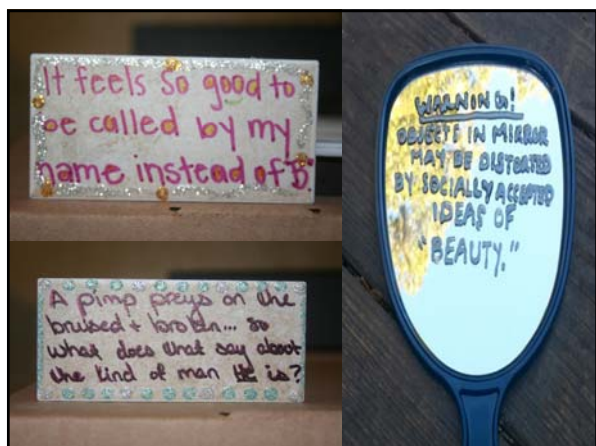 It feels so good to
be called by my
name instead of "B".
A pimp preys on the
bruised + broken... so
what does that say about
the kind of man HE is?
WARNING!
OBJECTS IN MIRROR
MAY BE DISTORTED
BY SOCIALLY ACCEPTED
IDEAS OF
"BEAUTY."